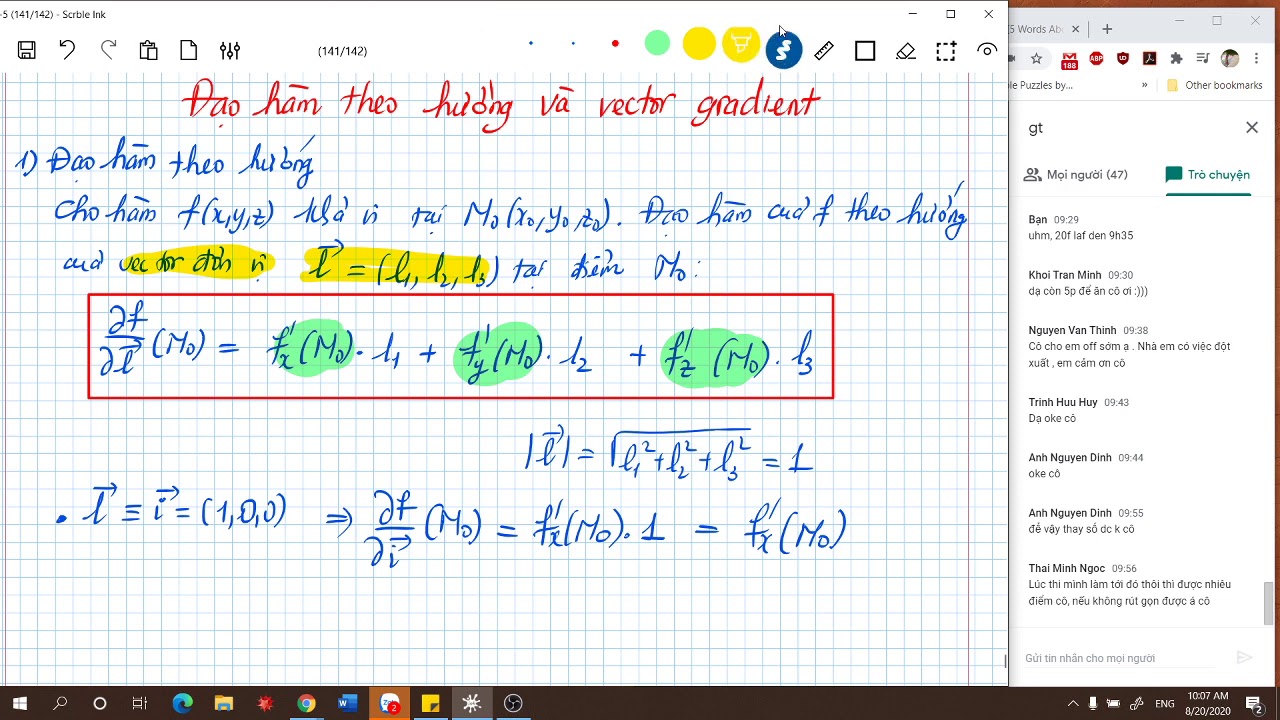 -5 (141/142) - Scrble Ink
(141/142)
Đạo hàm theo hướng và vector gradient
1) Đạo hàm theo hướng
Cho hàm f(x,y,z) khả vi tại M₀(x₀,y₀,z₀). Đạo hàm của f theo hướng
của vector đơn vị l⃗ = (l₁, l₂, l₃) tại điểm M₀:
∂f/∂l⃗ (M₀) = f'ₓ(M₀). l₁ + f'y(M₀). l₂ + f'z (M₀). l₃
|l⃗| = √(l₁² + l₂² + l₃²) = 1
• l⃗ ≡ i⃗ = (1,0,0) ⇒ ∂f/∂i⃗ (M₀) = f'ₓ(M₀). 1 = f'ₓ(M₀)
5 Words Abo
188
ABP
ble Puzzles by...
»
Other bookmarks
gt
Mọi người (47)
Trò chuyện
Bạn 09:29
uhm, 20f laf den 9h35
Khoi Tran Minh 09:30
dạ còn 5p để ăn cô ơi :)))
Nguyen Van Thinh 09:38
Cô cho em off sớm ạ . Nhà em có việc đột
xuất , em cảm ơn cô
Trinh Huu Huy 09:43
Dạ oke cô
Anh Nguyen Dinh 09:44
oke cô
Anh Nguyen Dinh 09:55
để vậy thay số dc k cô
Thai Minh Ngoc 09:56
Lúc thi mình làm tới đó thôi thì được nhiêu
điểm cô, nếu không rút gọn được á cô
Gửi tin nhắn cho mọi người
2
ENG
10:07 AM
8/20/2020
2